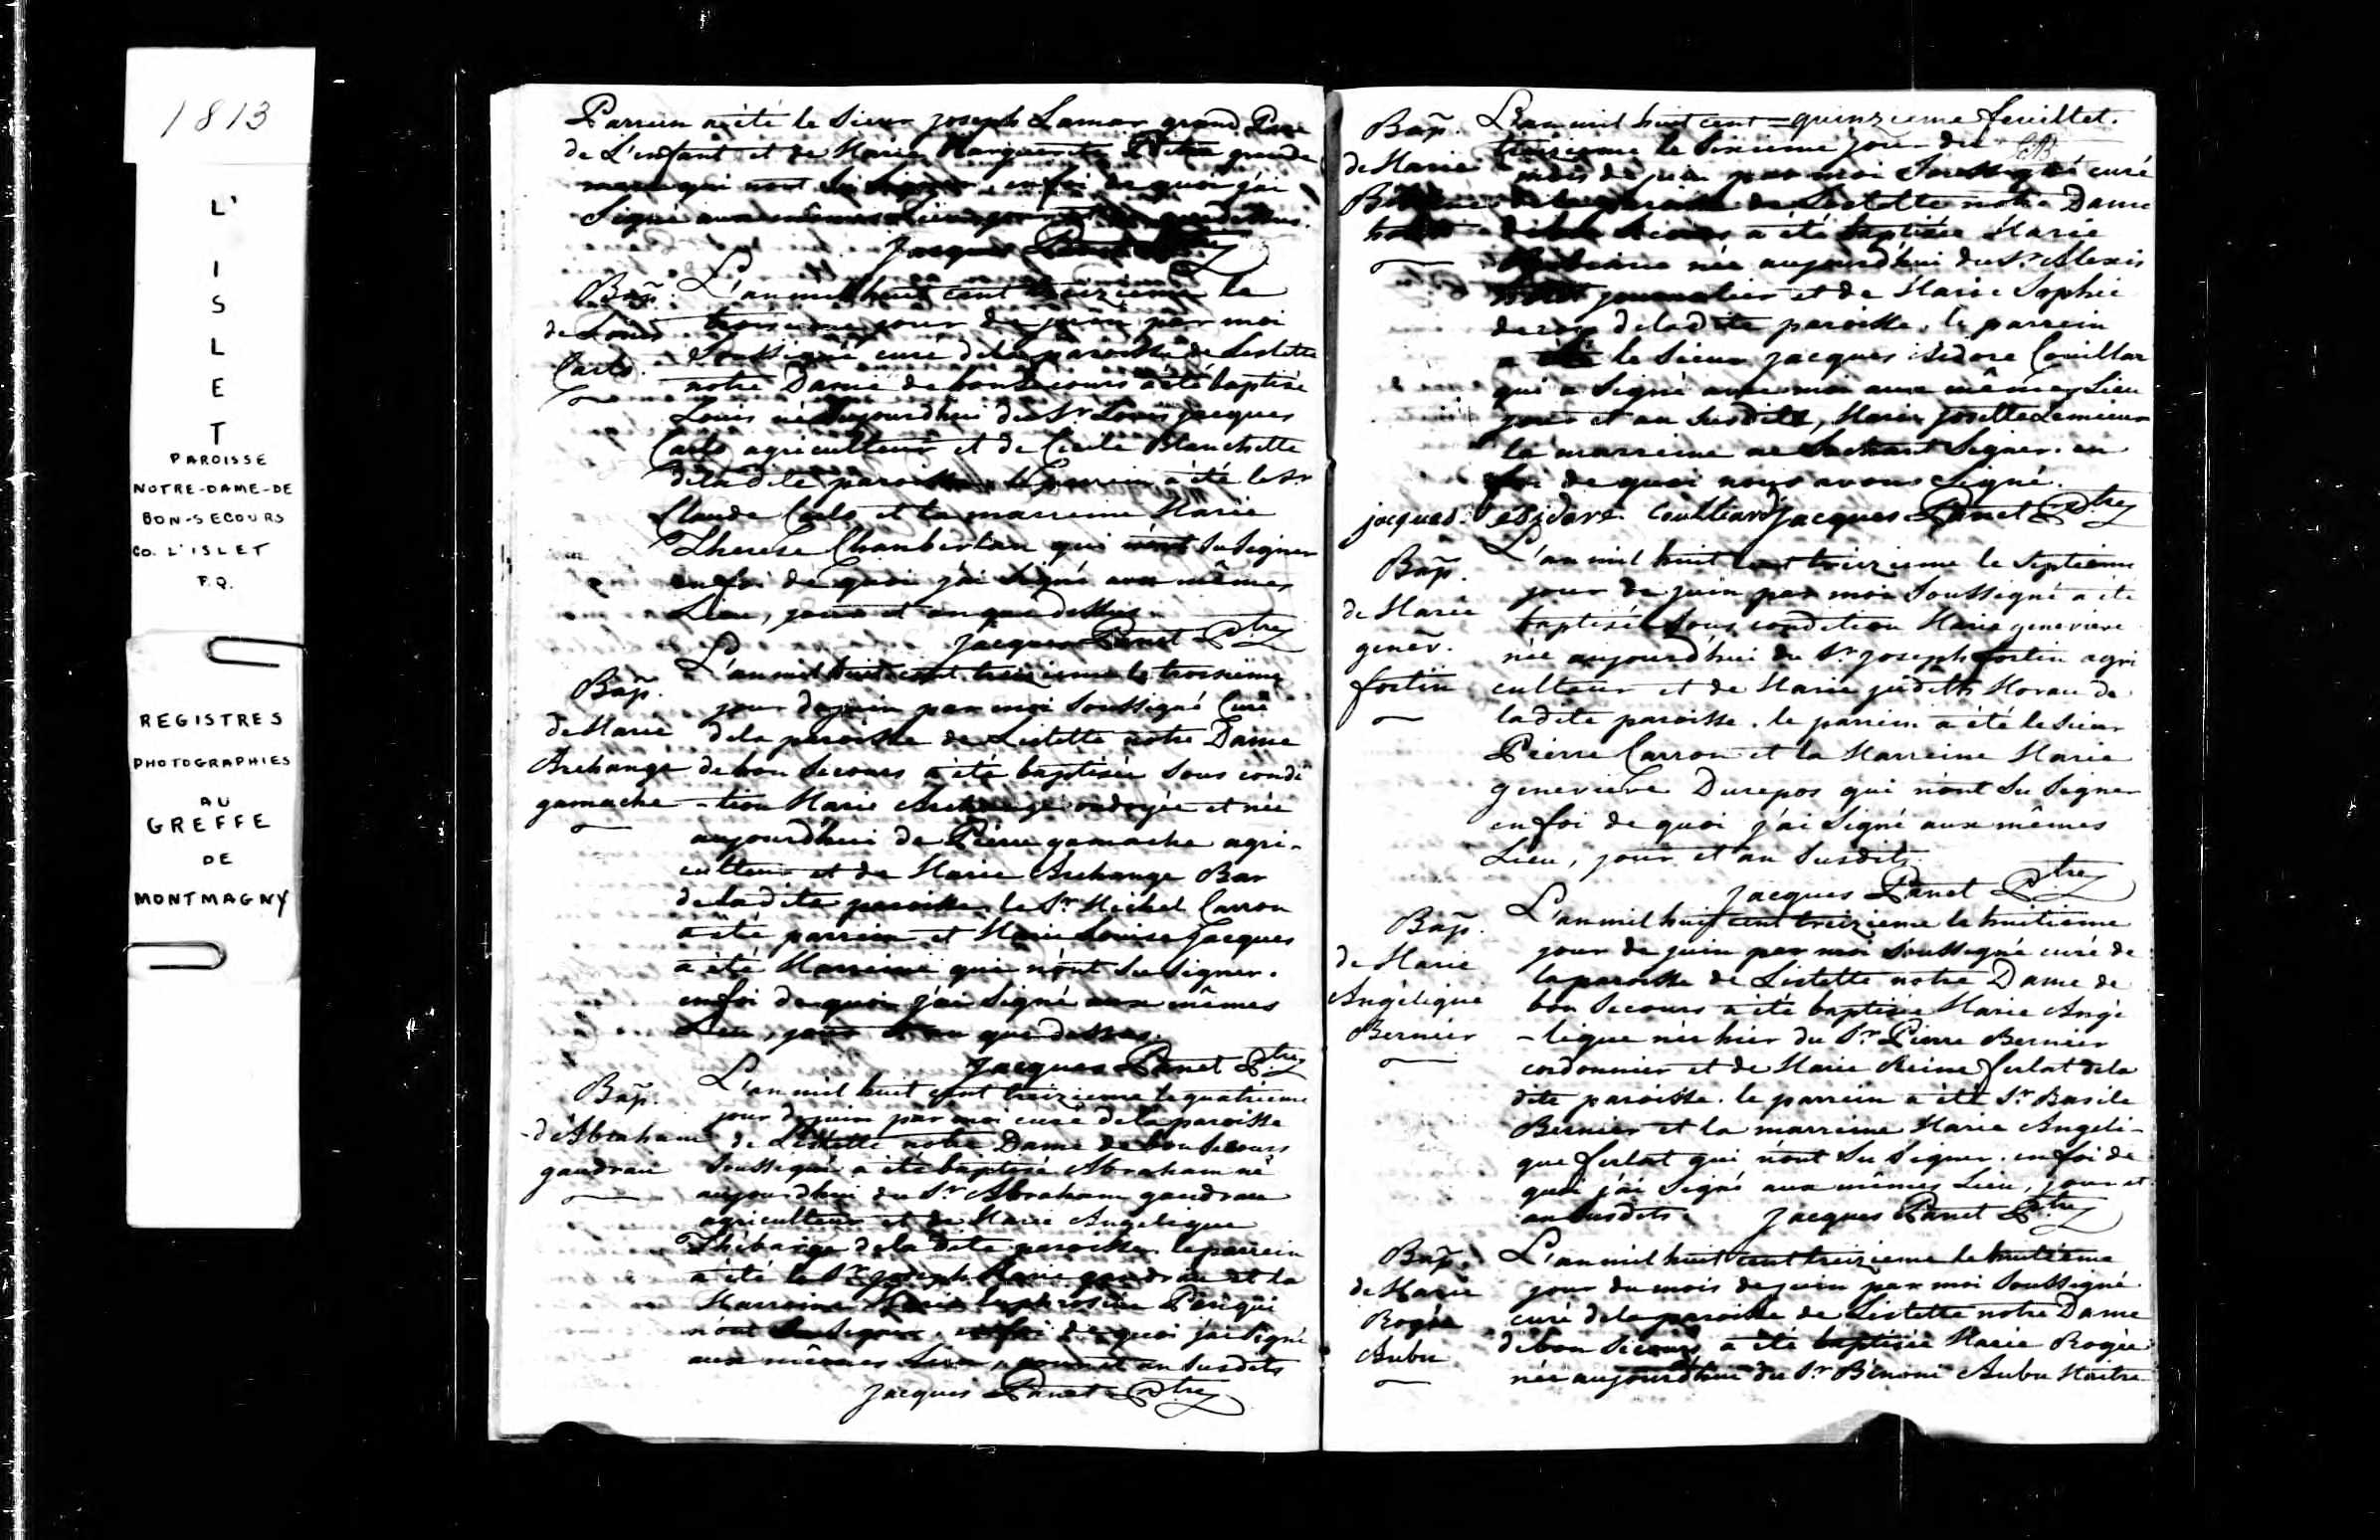 1813
L'
I
S
L
E
T
PAROISSE
NOTRE-DAME-DE
BON-SECOURS
CO. L'ISLET
P.Q.
REGISTRES
PHOTOGRAPHIES
AU
GREFFE
DE
MONTMAGNY
Parrein a été le Sieur joseph Lamar grand Pere
de L'enfant et de Marie Marguerite grande
mere qui n'ont Su Signer en foi de quoi j'ai
Signé aux mêmes Lieu jour et an que dessus.
Jacques Panet Ptre
Bap. L'an mil huit cent treizieme le
de Louis troisieme jour de juin par moi
Soussigné curé de la paroisse de Listette
notre Dame de bon Secours a été baptisé
Louis né aujourdhui du Sr Louis jacques
agriculteur et de Cecile Blanchette
dela dite paroisse le parrein a été le Sr
Claude et la marreine Marie
Therese Chanberlan qui n'ont Su Signer
en foi de quoi j'ai Signé aux mêmes
Lieu, jour et an que dessus
Jacques Panet Ptre
Bap. L'an mil huit cent treizieme le troisieme
jour de juin par moi Soussigné Curé
de Marie dela paroisse de Listette notre Dame
Archange de bon Secours a été baptisée Sous condi
gamache -tion Marie Archange ondoyée et née
aujourd'hui de Pierre gamache agri-
culteur et de Marie Archange Bar
de la dite paroisse le Sr Michel Carron
a été parrein et Marie Louise Jacques
a été Marreine qui n'ont Su Signer.
en foi de quoi j'ai Signé aux mêmes
Lieu, jour et an que dessus.
Jacques Panet Ptre
Bap. L'an mil huit cent treizieme le quatrieme
jour de juin par moi curé de la paroisse
d'Abraham de Listette notre Dame de bon Secours
gaudrau Soussigné a été baptisé Abraham né
aujourdhui du Sr Abraham gaudrau
agriculteur et de Marie Angelique
Thibarge de la dite paroisse. le parrein
a été le Sr joseph Marie gaudrau et la
Marreine Marie Euphrosine qui
n'ont Su Signer. en foi de quoi j'ai Signé
aux mêmes Lieu, jour et an Susdits
Jacques Panet Ptre
Bap. L'an mil huit cent = quinzieme feuillet.
treizieme le Sixieme jour du
de Marie mois de juin par moi Soussigné curé
de la paroisse de Listette notre Dame
de bon Secours a été baptisée Marie
née aujourd'hui du Sr Alexis
journalier et de Marie Sophie
de la dite paroisse. le parrein
a été le Sieur jacques isidore Couillar
qui a Signé avec moi aux mêmes Lieu
jour et an Susdits, Marie josette Lemieux
la marreine ne Sachant Signer. en
foi de quoi nous avons Signé.
jacques esidore Couilliard Jacques Panet Ptre
Bap. L'an mil huit cent treizieme le Septieme
jour de juin par moi Soussigné a été
de Marie baptisée Sous condition Marie genevieve
genev. née aujourd'hui du Sr joseph fortin agri
fortin culteur et de Marie judith Morau de
la dite paroisse. le parrein a été le Sieur
Pierre Carron et la Marreine Marie
genevieve Durepos qui n'ont Su Signer
en foi de quoi j'ai Signé aux mêmes
Lieu, jour et an Susdits.
Jacques Panet Ptre
Bap. L'an mil huit cent treizieme le huitieme
jour de juin par moi Soussigné curé de
de Marie la paroisse de Listette notre Dame de
Angélique bon Secours a été baptisée Marie Angé
Bernier -lique née hier du Sr Pierre Bernier
cordonnier et de Marie Reine ferlat dela
dite paroisse. le parrein a été Sr Basile
Bernier et la marreine Marie Angeli-
que ferlat qui n'ont Su Signer. en foi de
quoi j'ai Signé aux mêmes Lieu, jour et
an Susdits. Jacques Panet Ptre
Bap. L'an mil huit cent treizieme le huitieme
de Marie jour du mois de juin par moi Soussigné
Rogée curé dela paroisse de Listette notre Dame
Aubu de bon Secours a été baptisée Marie Rogée
née aujourdhui du Sr Bénoni Aubu Maitre